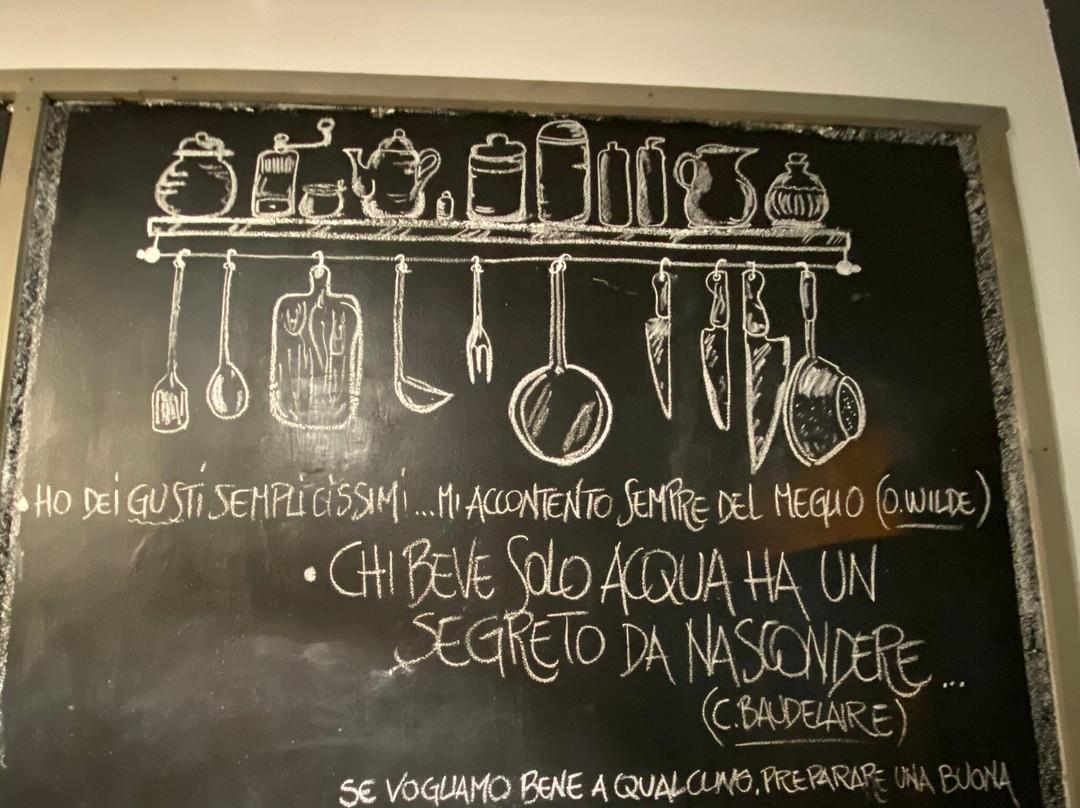 • HO DEI GUSTI SEMPLICISSIMI...MI ACCONTENTO SEMPRE DEL MEGLIO (O.WILDE)
• CHI BEVE SOLO ACQUA HA UN
SEGRETO DA NASCONDERE...
(C.BAUDELAIRE)
SE VOGLIAMO BENE A QUALCUNO, PREPARARE UNA BUONA